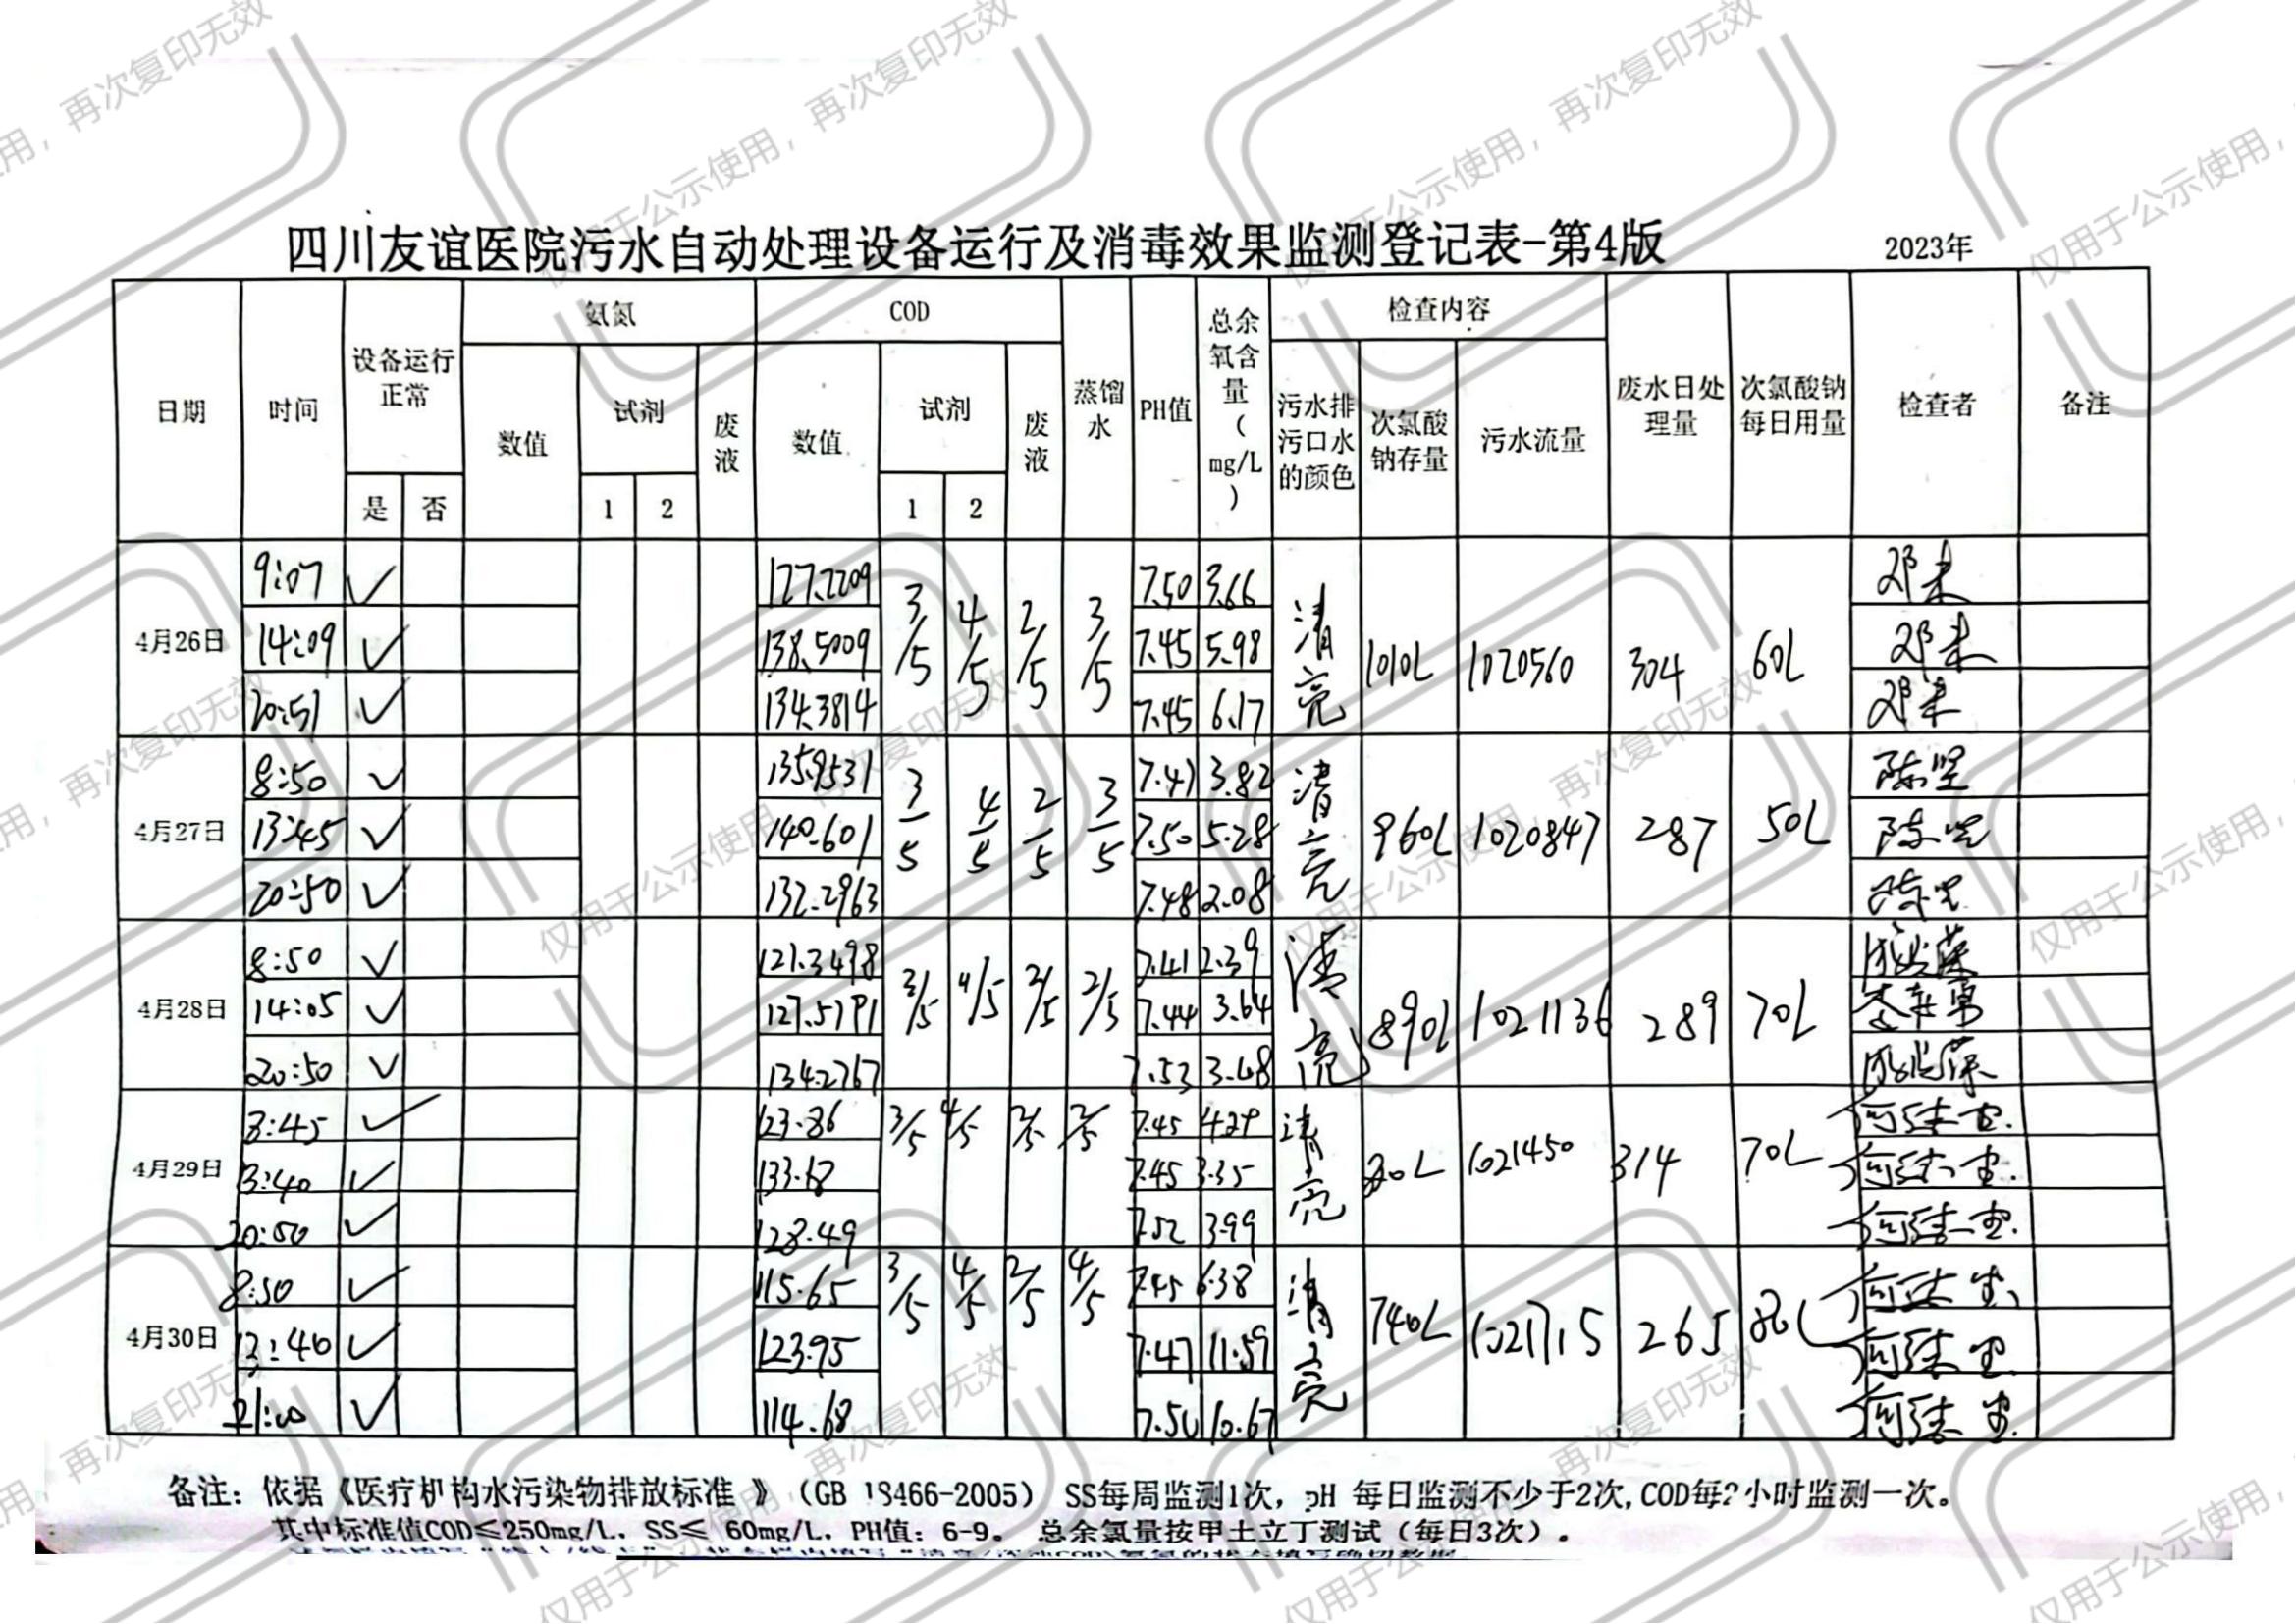 四川友谊医院污水自动处理设备运行及消毒效果监测登记表-第4版 2023年
日期 时间 设备运行正常 氨氮 COD 蒸馏水 PH值 总余氧含量(mg/L) 检查内容 废水日处理量 次氯酸钠每日用量 检查者 备注
是 否 数值 试剂 废液 数值 试剂 废液 污水排污口水的颜色 次氯酸钠存量 污水流量
1 2 1 2
4月26日 9:07 ✓ 127.2209 3/5 4/5 2/5 3/5 7.50 3.66 清亮 1010L 1020560 304 60L
14:09 ✓ 138.5009 7.45 5.98
20:51 ✓ 134.3814 7.45 6.17
4月27日 8:50 ✓ 135.9531 3/5 4/5 2/5 3/5 7.47 3.82 清亮 960L 1020847 287 50L 陈坚
13:45 ✓ 140.601 7.50 5.28 陈坚
20:50 ✓ 132.2963 7.48 2.08 陈坚
4月28日 8:50 ✓ 121.3498 3/5 4/5 2/5 2/5 7.41 2.39 清亮 890L 1021136 289 70L
14:05 ✓ 127.5791 7.44 3.64
20:50 ✓ 134.2767 7.53 3.48
4月29日 8:45 ✓ 123.86 3/5 4/5 2/5 2/5 7.45 4.29 清亮 1021450 314 70L
3:40 ✓ 133.67 7.45 3.35
20:50 ✓ 128.49 7.52 3.99
4月30日 8:50 ✓ 115.65 3/5 4/5 2/5 4/5 7.45 6.38 清亮 740L 1021715 265 80L
13:40 ✓ 123.95 7.47 11.59
21:00 ✓ 114.68 7.50 10.67
备注：依据《医疗机构水污染物排放标准 》（GB 18466-2005） SS每周监测1次，pH 每日监测不少于2次,COD每2小时监测一次。
其中标准值COD≤250mg/L，SS≤ 60mg/L，PH值：6-9。 总余氯量按甲土立丁测试（每日3次）。
仅用于公示使用，再次复印无效